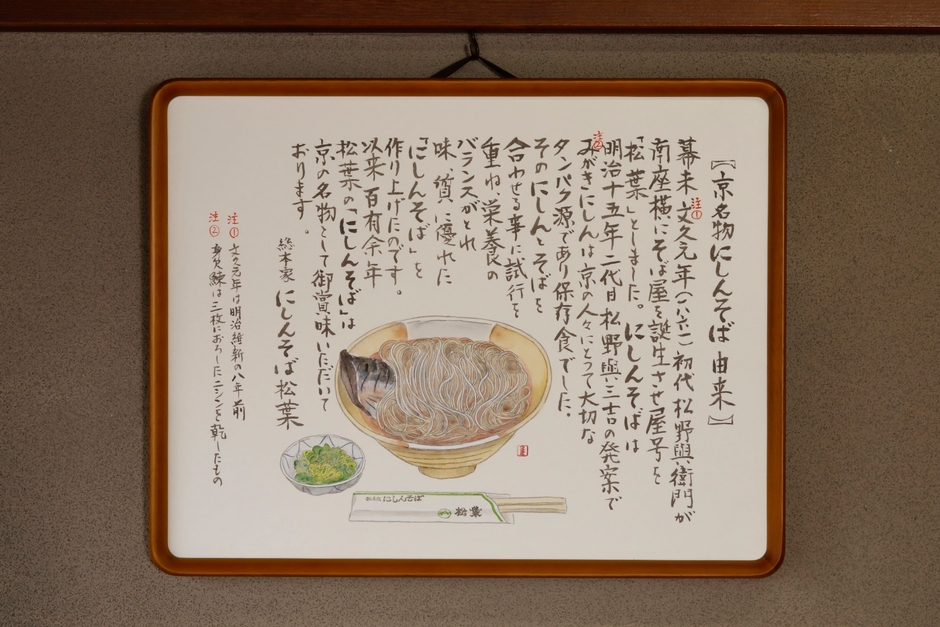 【京名物にしんそば 由来】
幕末 文久元年(一八六一)初代 松野與衛門が
注①
南座横にそば屋を誕生させ屋号を
「松葉」としました。にしんそばは
明治十五年 二代目 松野與三吉の発案で
注②
みがきにしんは京の人々にとって大切な
タンパク源であり保存食でした。
そのにしんとそばを
合わせる事に試行を
重ね、栄養の
バランスがとれ
味、質に優れた
「にしんそば」を
作り上げたのです。
以来 百有余年
松葉の「にしんそば」は
京の名物として御賞味いただいて
おります。
総本家 にしんそば 松葉
注① 文久元年は明治維新の八年前
注② 身欠鰊は三枚におろしたニシンを乾したもの
総本家 にしんそば
松葉